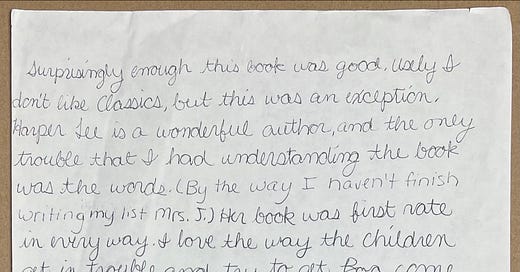 Surprisingly enough this book was good. Usely I
don't like Classics, but this was an exception.
Harper Lee is a wonderful author, and the only
trouble that I had understanding the book
was the words. (By the way I haven't finish
writing my list Mrs. J.) Her book was first rate
in every way. I love the way the children
get in trouble and try to get Boo come